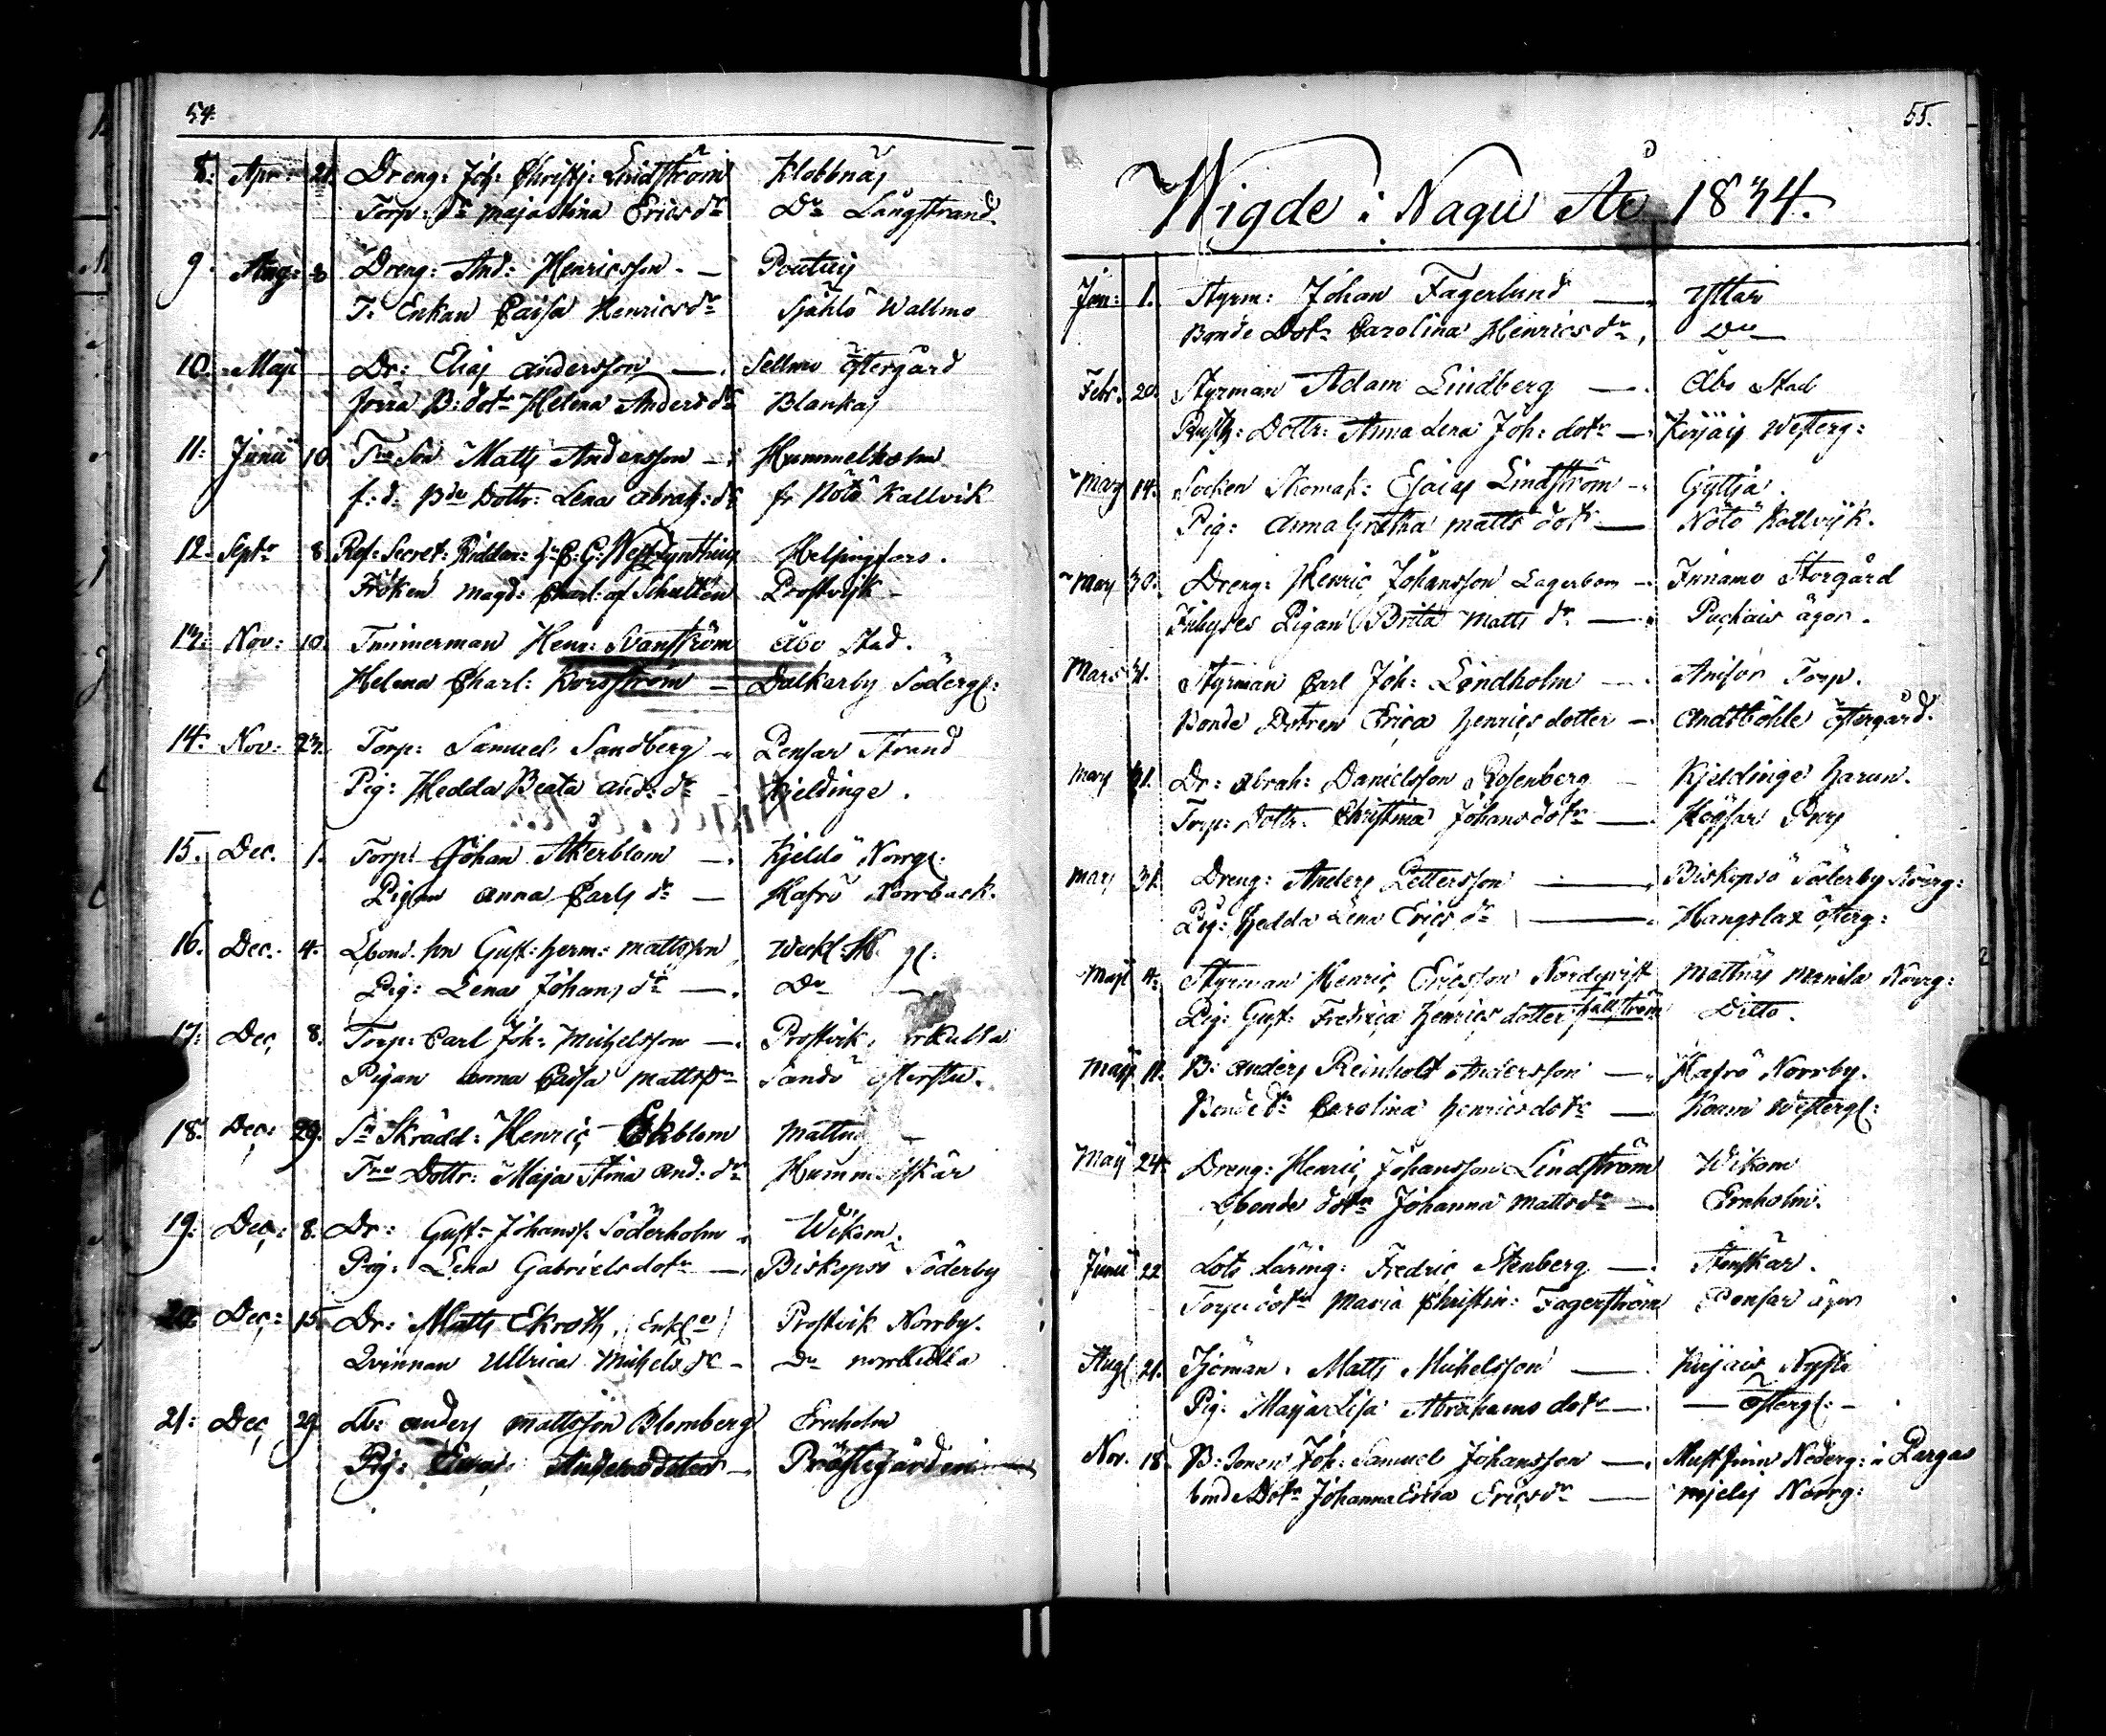 54.
8. Apr: 21. Dreng: Joh: Christ: Lindström Klobbnäs
Torp: dr Maja Stina Ericsdr Do Långstrand
9. Aug: 8 Dreng: And: Henricsson. —
T. Enkan Caisa Henricsdr Själö Wallmo
10. Maji — Dr: Elias Andersson — Sellmo Östergård
B: dotr Helena Andersdr Blankas
11: Junii 10 Matts Andersson — Hummelholm
f: d: Bde Dottr: Lena Abrah: dr fr Nötö Kallvik
12. Septr 8. Ref: Secret: Riddar: Hr C: G: Helsingfors.
Fröken Magd: Charl: af Schultén Prostvik —
13. Nov: 10. Timmerman Henr: Svanström Åbo Stad.
Helena Charl: Korsström — Dalkarby Södergl:
14. Nov: 23. Torp: Samuel Sandberg — Pensar Strand
Pig: Hedda Beata And: dr — Kjeldinge.
15. Dec. 1. Torp: Johan Åkerblom — Kjeldö Norrg:
Pigan Anna Carls dr — Hafrö Norrback.
16. Dec: 4. Gust: Herm: Mattsson
Pig: Lena Johans dr — Do —
17: Dec, 8. Torp: Carl Joh: Michelsson — Prostvik
Pigan Anna Caisa Mattsdr Sandö
18. Dec: 29. Sn Skrädd: Henric Ekblom
Dottr: Maja Stina And: dr
19. Dec: 8. Dr: Gust: Johanss: Söderholm Wikom.
Pig: Lena Gabrielsdotr — Biskopsö Söderby
20. Dec: 15. Dr: Matts Ekroth, Prostvik Norrby.
Qvinnan Ullrica Michels dr — Do
21: Dec, 29. Anders Mattsson Blomberg Ernholm
Pig: Andersdoter — Prästegården
55.
Wigde i Nagu År 1834.
Jan: 1. Styrm: Johan Fagerlund — Yttar
Bonde Dotr Carolina Henricsdr, Do —
Febr. 20. Styrman Adam Lindberg — Åbo Stad
Rusth: Dottr: Anna Lena Joh: dotr — Kirjais Westerg:
Mars 14. Socken Skomak: Esaias Lindström — Gyttja.
Pig: Anna Gretha Matts dotr — Nötö Kallvijk.
Mars 30. Dreng: Henric Johansson Lagerbom — Finnamo Storgård
Inhyses Pigan Brita Matts dr — ägor.
Mars 31. Styrman Carl Joh: Lindholm — Torp.
Bonde Dotren Erica Henricsdotter — Andtböhle Östergård.
Mars 31. Dr: Abrah: Danielsson Rosenberg — Kjeldinge Harun.
Torp: Dottr: Christina Johansdotr — Högsar
Mars 31. Dreng: Anders Pettersson — Biskopsö Söderby Norrg:
Pig: Hedda Lena Erics dr — Hangslax Österg:
Maji 4. Styrman Henric Ericsson Nordqvist Mattnäs Mernila Norrg:
Pig: Gust: Fredrica Henricsdotter Hällström Ditto.
Maji 11. B: Anders Reinhold Andersson — Hafrö Norrby.
Bonde dr Carolina Henricsdotr — Koum Westergl:
Maji 24. Dreng: Henric Johansson Lindström Wikom
dotr Johanna Mattsdr — Ernholm.
Junii 22 Lots Läring: Fredric Stenberg — Stenskär.
Torpe dotr Maria Christin: Fagerström Pensar ägor
Aug: 21. Sjöman. Matts Michelsson — Kirjais Nystu
Pig: Maja Lisa Abrahams dotr — — Östergl: —
Nov. 18. B: Sonen Joh: Samuel Johansson — Mustfinn Nederg: i Pargas
bonde Dotr Johanna Erica Ericsdr — Norrg: